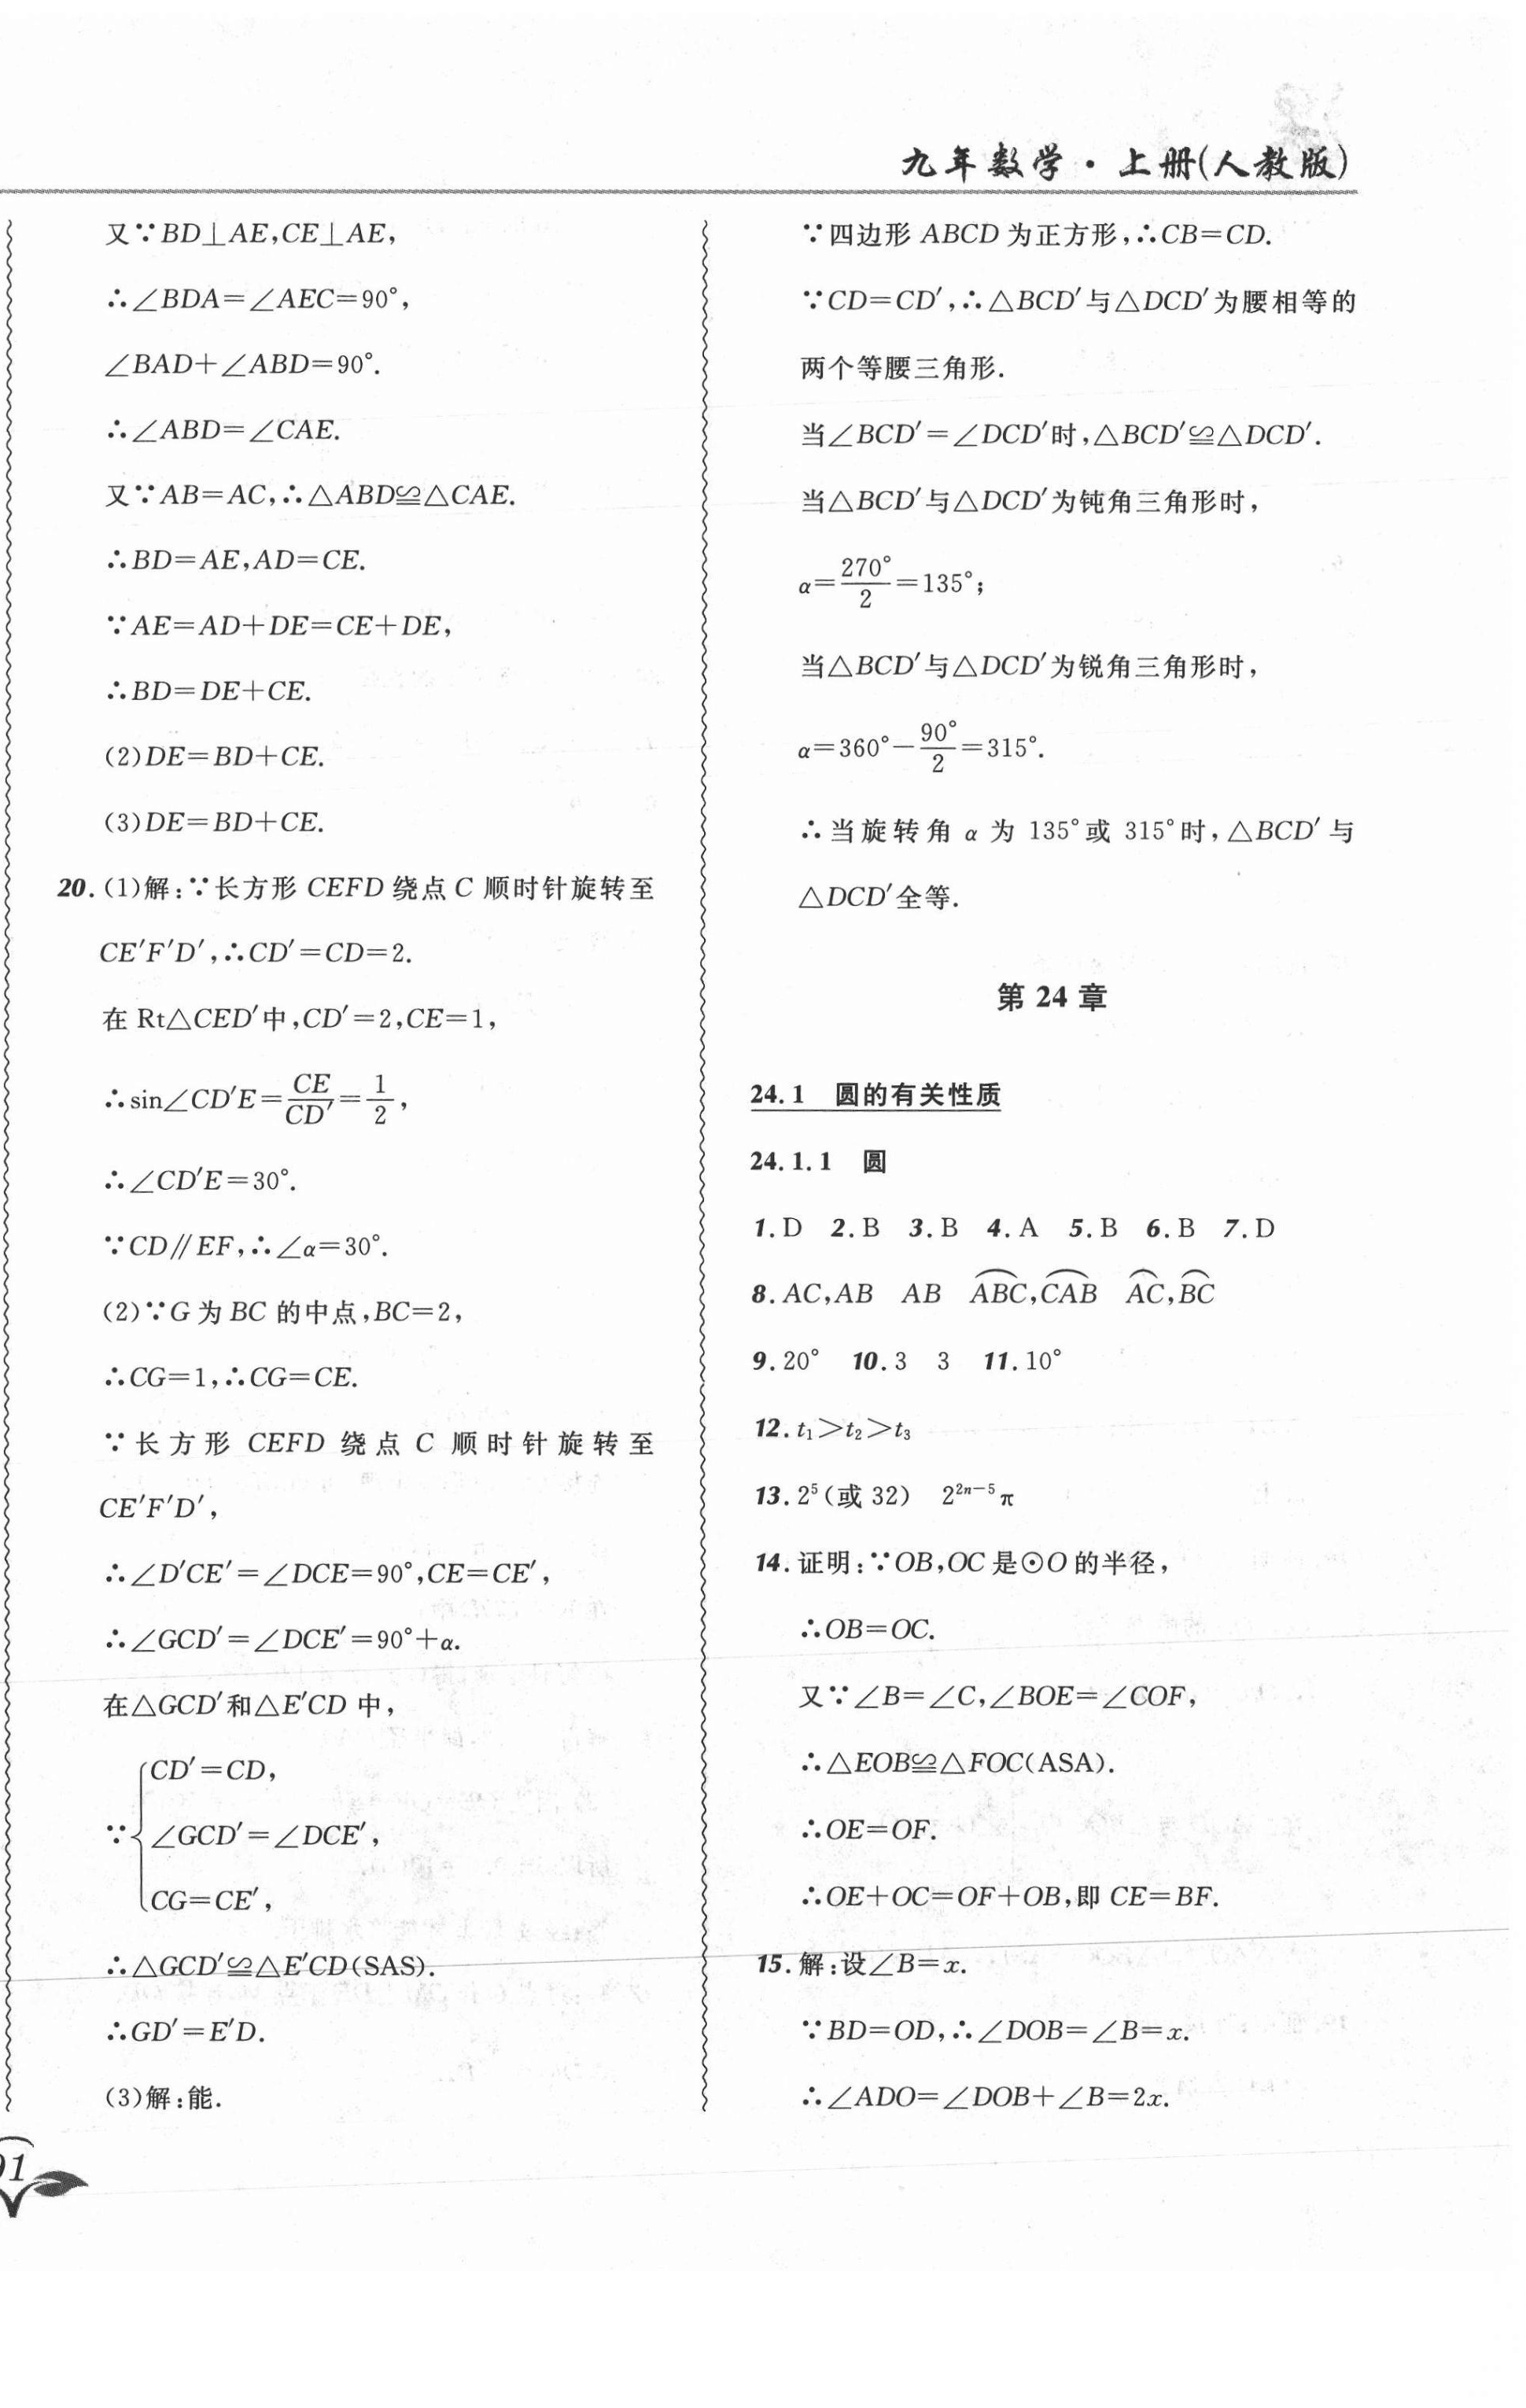 九年数学·上册(人教版)
又∵BD⊥AE,CE⊥AE,
∴∠BDA=∠AEC=90°,
∠BAD+∠ABD=90°.
∴∠ABD=∠CAE.
又∵AB=AC,∴△ABD≌△CAE.
∴BD=AE,AD=CE.
∵AE=AD+DE=CE+DE,
∴BD=DE+CE.
(2)DE=BD+CE.
(3)DE=BD+CE.
20.(1)解:∵长方形 CEFD 绕点 C 顺时针旋转至
CE′F′D′,∴CD′=CD=2.
在 Rt△CED′中,CD′=2,CE=1,
∴sin∠CD′E=CE/CD′=1/2,
∴∠CD′E=30°.
∵CD∥EF,∴∠α=30°.
(2)∵G 为 BC 的中点,BC=2,
∴CG=1,∴CG=CE.
∵长方形 CEFD 绕点 C 顺时针旋转至
CE′F′D′,
∴∠D′CE′=∠DCE=90°,CE=CE′,
∴∠GCD′=∠DCE′=90°+α.
在△GCD′和△E′CD 中,
CD′=CD,
∵{∠GCD′=∠DCE′,
CG=CE′,
∴△GCD′≌△E′CD(SAS).
∴GD′=E′D.
(3)解:能.
∵四边形 ABCD 为正方形,∴CB=CD.
∵CD=CD′,∴△BCD′与△DCD′为腰相等的
两个等腰三角形.
当∠BCD′=∠DCD′时,△BCD′≌△DCD′.
当△BCD′与△DCD′为钝角三角形时,
α=270°/2=135°;
当△BCD′与△DCD′为锐角三角形时,
α=360°−90°/2=315°.
∴当旋转角 α 为 135°或 315°时,△BCD′与
△DCD′全等.
第 24 章
24.1 圆的有关性质
24.1.1 圆
1.D 2.B 3.B 4.A 5.B 6.B 7.D
8.AC,AB AB ⌒ABC,⌒CAB ⌒AC,⌒BC
9.20° 10.3 3 11.10°
12.t₁>t₂>t₃
13.2⁵(或 32) 2²ⁿ⁻⁵π
14.证明:∵OB,OC 是⊙O 的半径,
∴OB=OC.
又∵∠B=∠C,∠BOE=∠COF,
∴△EOB≌△FOC(ASA).
∴OE=OF.
∴OE+OC=OF+OB,即 CE=BF.
15.解:设∠B=x.
∵BD=OD,∴∠DOB=∠B=x.
∴∠ADO=∠DOB+∠B=2x.